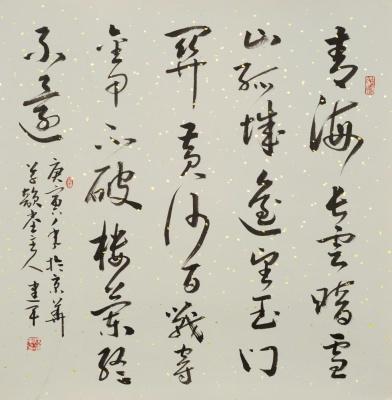 青海长云暗雪
山孤城遥望玉门
关黄沙百战穿
金甲不破楼兰终
不还
庚寅年於京华
堂主人建平